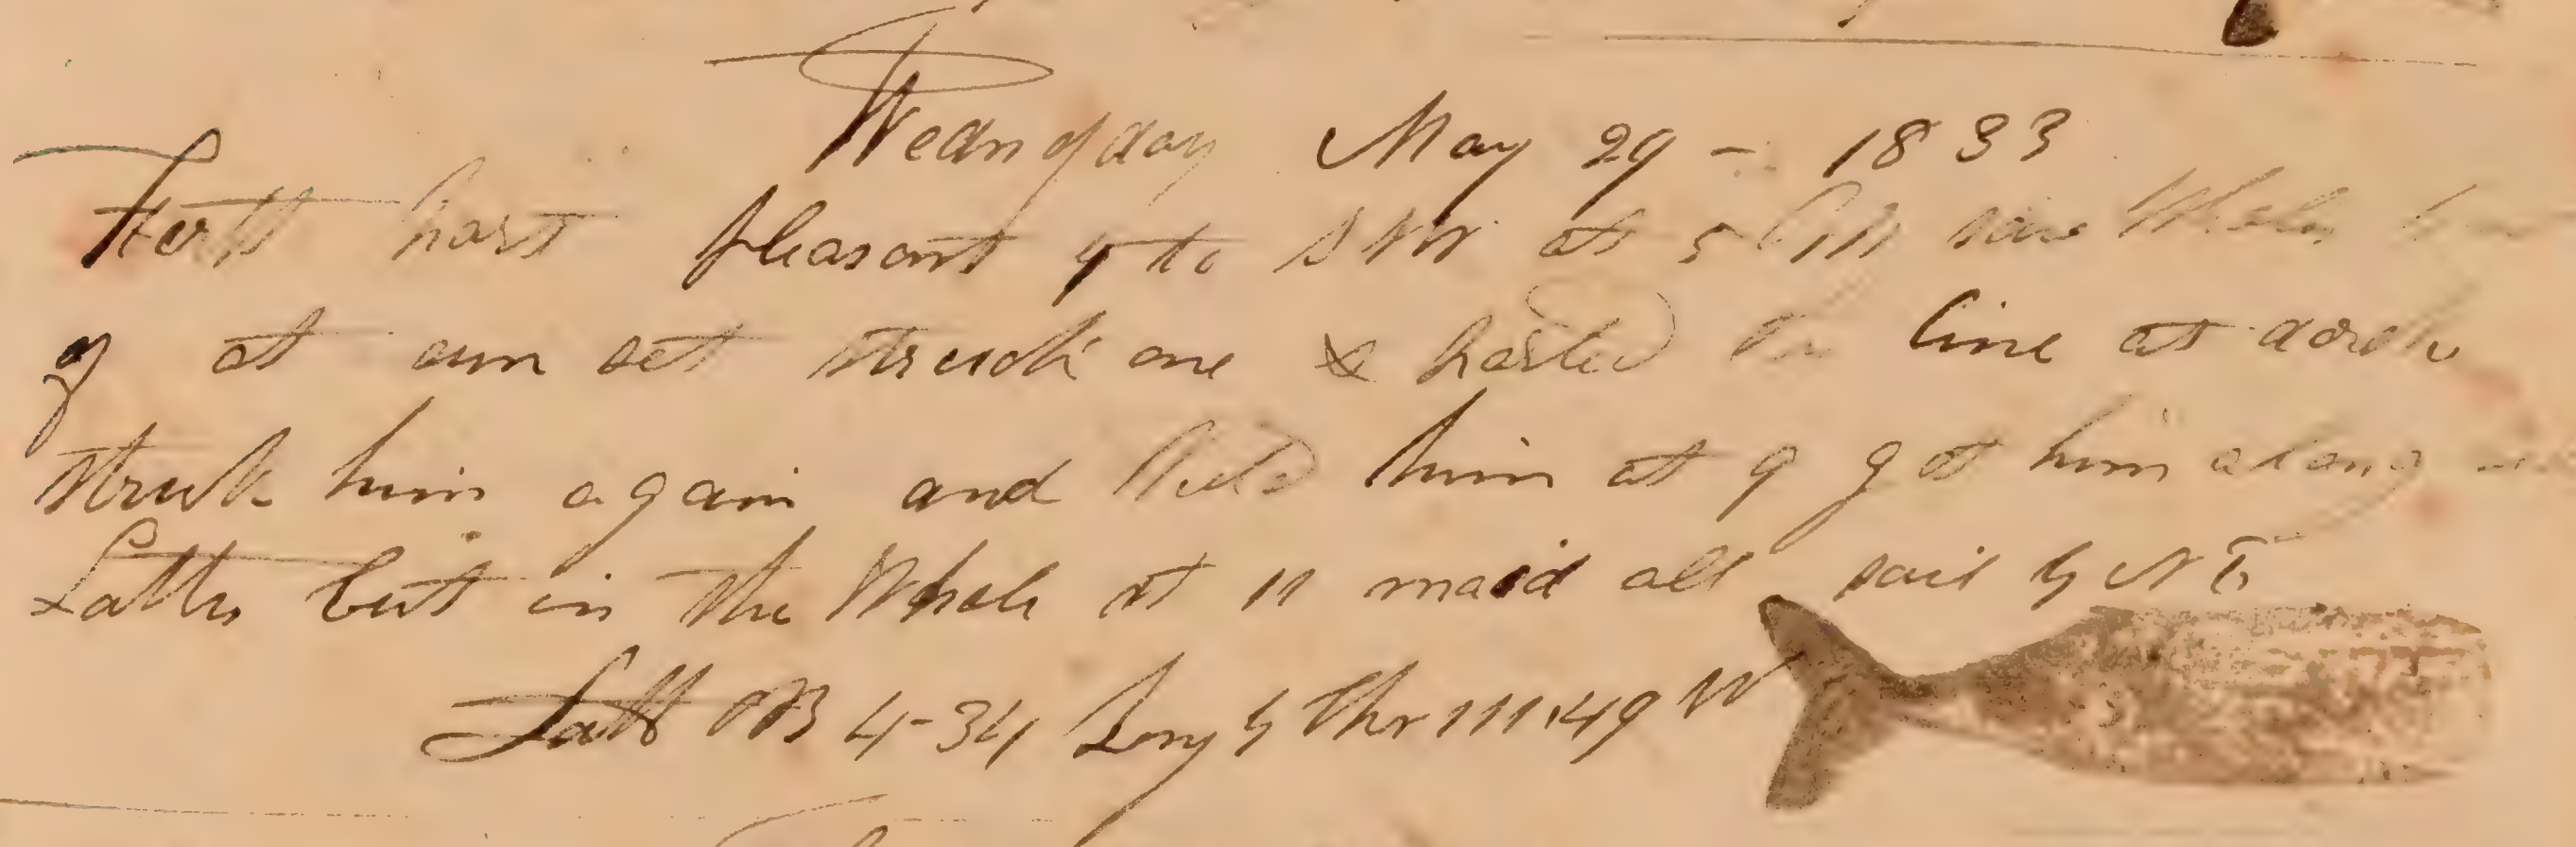 Wednsday May 29 - 1833
Ferst part pleasant to SW at 5 PM saw Whales
of at sun set struck one & parted line at dark
struck him again and him at 9 got him along
Latter cut in the Whale at 11 maid all sail by N E
Latt OB 4-34 Long by Chr 111.49 W